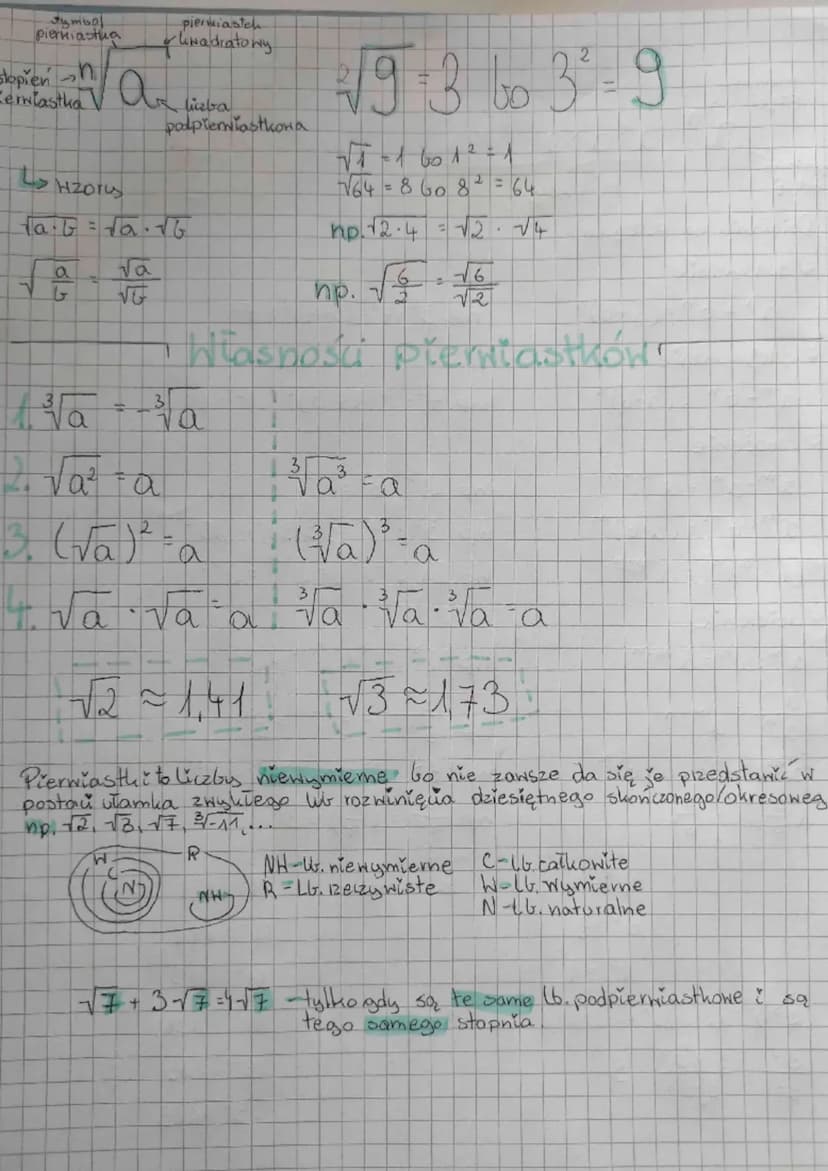 symbol pierwiastka
pierwiastek kwadratowy
stopień → ⁿ√a
pierwiastka
liczba podpierwiastkowa
²√9 = 3 bo 3² = 9
√1 = 1 bo 1² = 1
√64 = 8 bo 8² = 64
↳ wzory
√a·b = √a · √b
np. √2·4 = √2 · √4
√(a/b) = √a/√b
np. √(6/2) = √6/√2
Własności pierwiastków
1. ³√a = -³√a
2. √a² = a ³√a³ = a
3. (√a)² = a (³√a)³ = a
4. √a · √a = a ³√a · ³√a · ³√a = a
√2 ≈ 1,41 √3 ≈ 1,73
Pierwiastki to liczby niewymierne bo nie zawsze da się je przedstawić w
postaci ułamka zwykłego lub rozwinięcia dziesiętnego skończonego/okresoweg
np. √2, √3, √7, ³√-11, ...
W R
C
N
NW
NW - lb. niewymierne C - lb. całkowite
R = Lb. rzeczywiste W - Lb. wymierne
N - Lb. naturalne
√7 + 3√7 = 4√7 - tylko gdy są te same lb. podpierwiastkowe i są
tego samego stopnia.